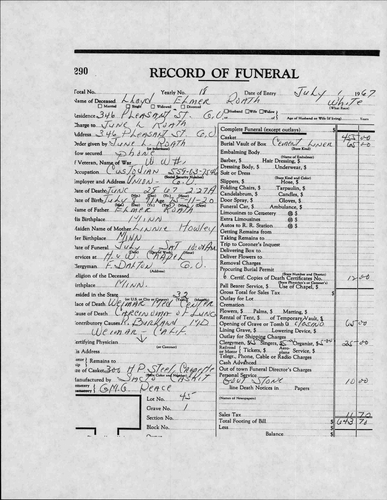 290
RECORD OF FUNERAL
Total No. Yearly No. 18 Date of Entry July 1, 1967
Name of Deceased Lloyd Elmer Roath White
Residence 346 Pleasant St. G.V.
Charge to June L. Roath
Address 346 Pleasant St. G.V.
Order given by June L. Roath
How secured Phone
If Veteran, Name of War W W II
Occupation Custodian
Employer and Address Union - G.V.
Date of Death June 28 67 2:27A
Date of Birth
His Birthplace Minn
Name of Father Elmer Roath
Maiden Name of Mother Linnie Howley
Her Birthplace Minn.
Date of Funeral July 1 Sat 10:00AM
Services at H. & W. Chapel
Clergyman F. Daston G.V.
Religion of the Deceased
Birthplace Minn.
Resided in the State 32
Place of Death Weimar Med Center
Cause of Death Carcinoma of Lung
Contributory Causes R. Burkhan MD
Weimar, Calif
Certifying Physician
His Address
Remains to
Size of Casket
Manufactured by Sacto Casket
GMG. Peace
Lot No. 45
Grave No. 1
Section No.
Block No.
Owner
Complete Funeral (except outlays) $
Casket 455 00
Burial Vault of Box Cement Liner 65 00
Embalming Body
Barber, $ Hair Dressing, $
Dressing Body, $ Underwear, $
Suit or Dress
Slippers, $ Hose, $
Folding Chairs, $ Tarpaulin, $
Candelabrum, $ Candles, $
Door Spray, $ Gloves, $
Funeral Car, $ Ambulance, $
Limousines to Cemetery @ $
Extra Limousines @ $
Autos to R. R. Station @ $
Getting Remains from
Taking Remains to
Trip to Coroner's Inquest
Delivering Box to
Delivering Flowers to
Removal Charges
Procuring Burial Permit
6 Certif. Copies of Death Certificates No. 12 00
Pall Bearer Service, $ Use of Chapel, $
Gross Total for Sta Tax
Outlay for Lot
Cremation
Flowers, $ Palms, $ Matting, $
Rental of Tent, $ of Temporary Vault, $
Opening of Grave or Tomb & Closing 65 00
Lining Grave, $ Lowering Device, $
Outlay for Shipping Charges
Clergymen, $ Singers, $ Organist, $ 25 00
Railroad Tickets, $ Aeroplane Service, $
Telegr., Phone, Cable or Radio Charges
Cash Advanced
Out of town Funeral Director's Charges
Personal Service
Govt Stone 10 00
line Death Notices in Papers
Sales Tax
Total Footing of Bill $
Less
Balance $